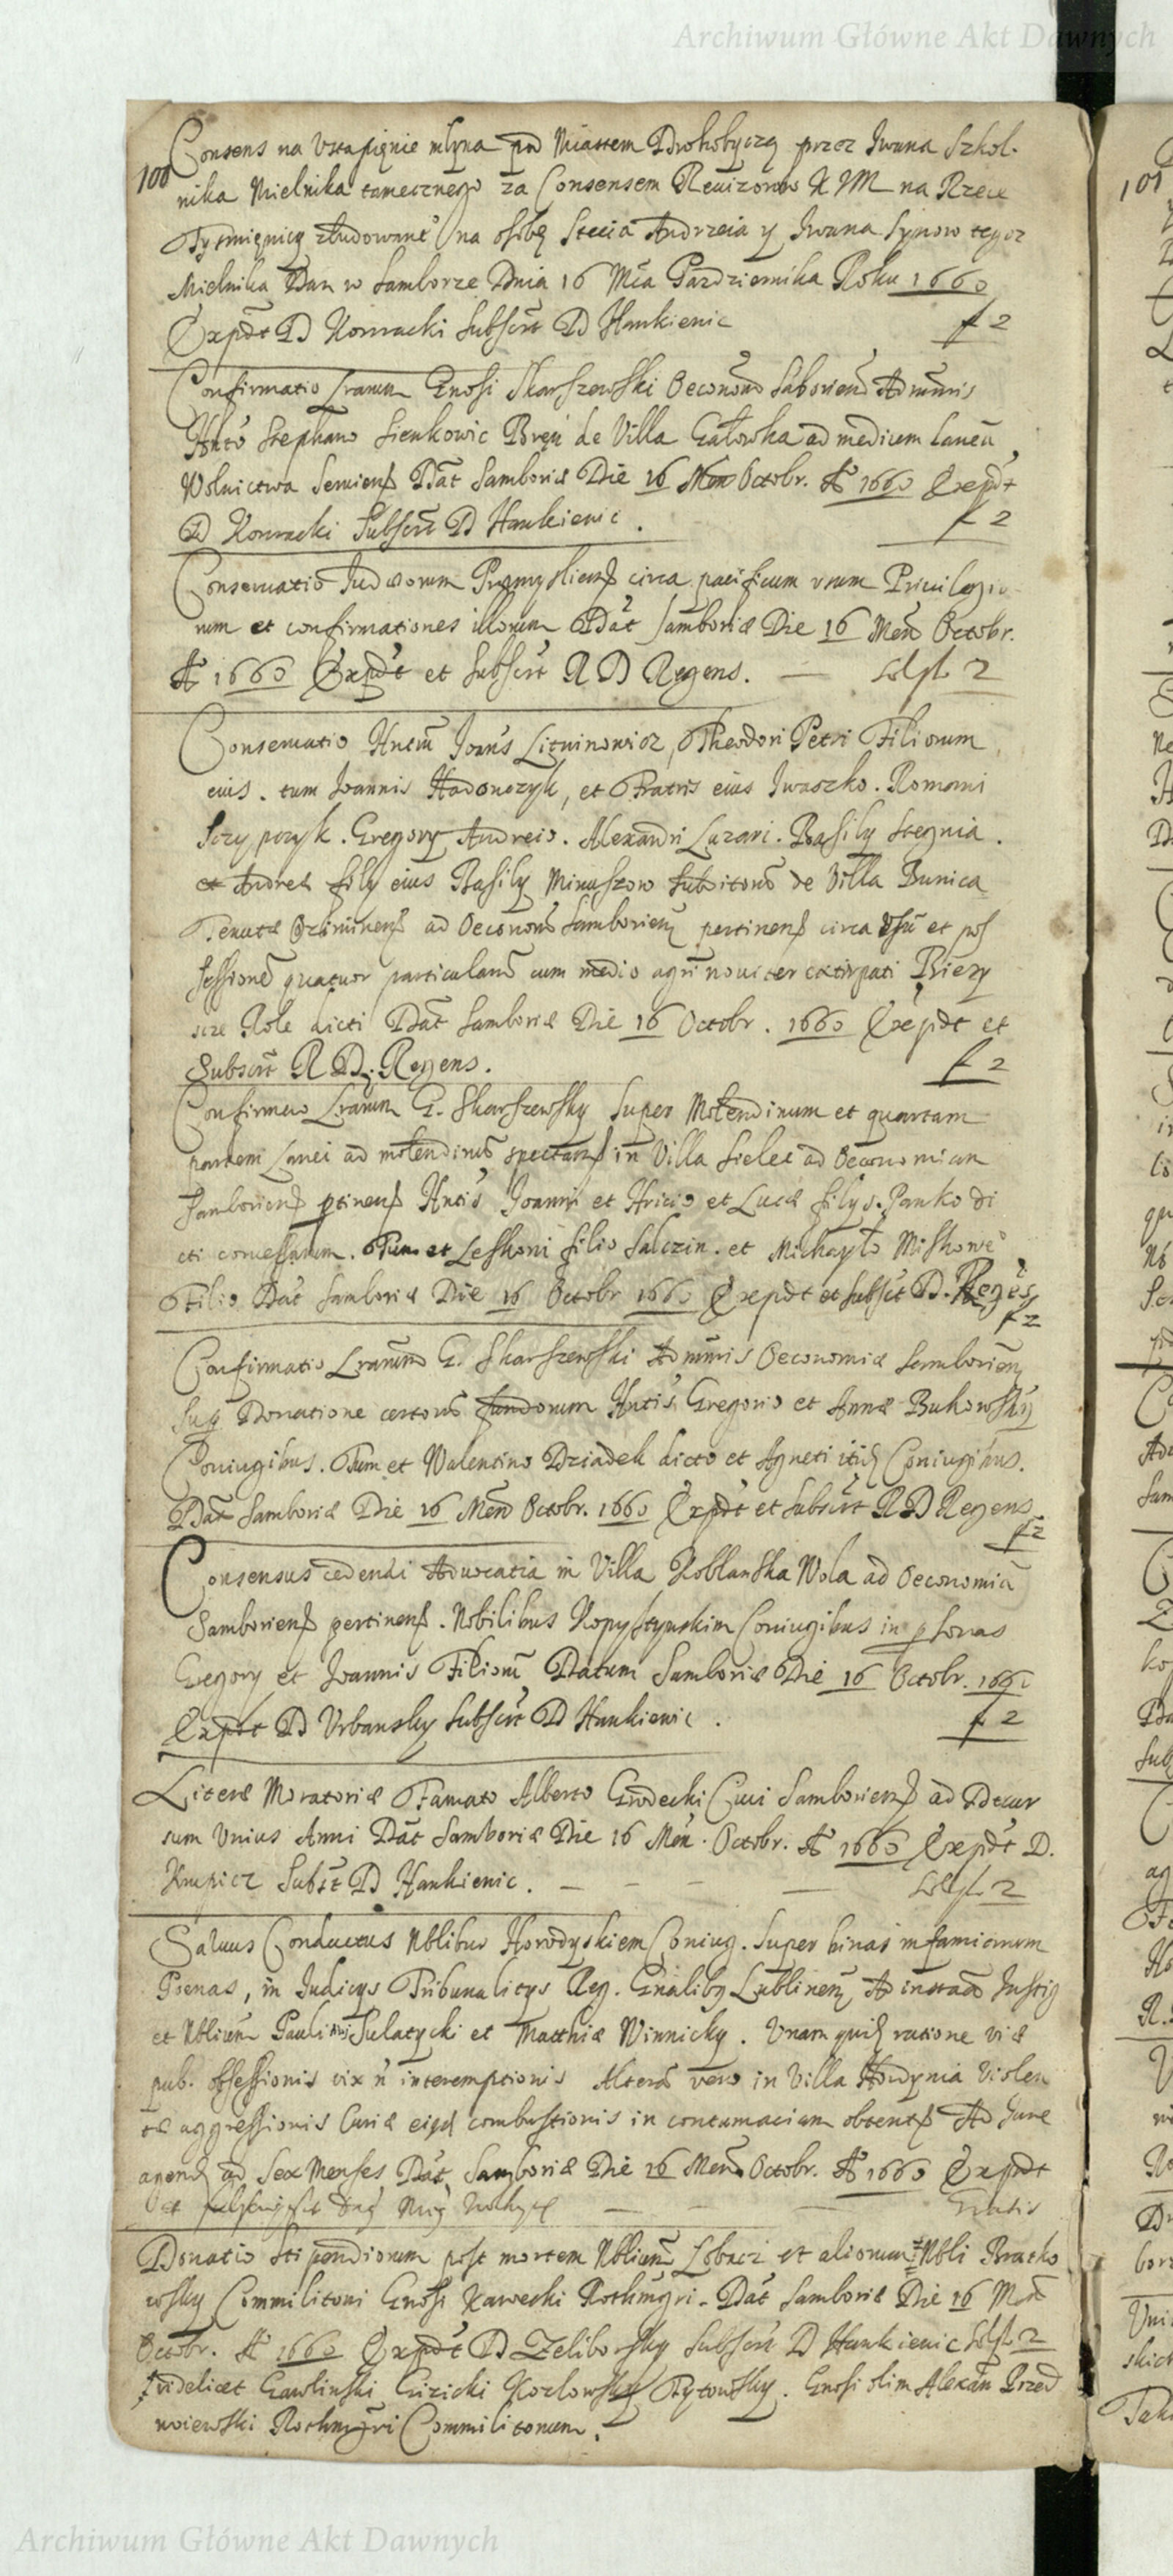 Archiwum Główne Akt Dawnych
100
Consens na Vstąpienie młyna pod Miastem Drohobyczą przez Iwana Szkol-
nika Mielnika tamecznego za Consensem Reuizorow K JM na Rzece
Tyśmięnicy zbudowane° na osobę Stecia Andrzeia y Iwana Synow tegoz
Mielnika Dan w Samborze Dnia 16 Mca Pazdziernika Roku 1660
Expdt D Konracki Subscrt D Hankiewic f 2
Confirmatio Lrarum Gnosi Skarszewski Oeconom Saborien Admnris
Hnto Stephano Sienkowic Bren de Villa Gałowka ad medium laneu
Wolnictwa Seruiens Dat Samboriæ Die 16 Men Octobr. Ao 1660 Expdt
D Konracki Subscrt D Hankiewic . f 2
Conseruatio Iudæorum Præmysliens circa pacificum vsum Priuilegio-
rum et confirmationes illorum Dat Samboriæ Die 16 Men Octobr.
Ao 1660 Expdt et Subscrt R D Regens. — 2
Conseruatio Hntm Joans Lituinowicz, Theodori Petri Filiorum
eius . tum Joannis Hadonczyk, et Fratris eius Iwaszko . Romani
. Gregory Andreis . Alexandri Lazari . Basily Stegnia .
et Andreæ fily eius Basily Minuszow Subditoru de Villa Bunica
Tenutæ Oziminens ad Oeconom Samborien pertinens circa Vsu et pos
sessione quatuor particularu cum medio agri nouiter extirpati
Role dicti Dat Samboriæ Die 16 Octobr . 1660 Expdt et
Subscrt R D. Regens. f 2
Confirmao Lrarum G. Skarszewsky Super Molendinum et quartam
partem Lanei ad molendinu spectans in Villa Sielec ad Oeconomiam
Samboriens ptinens Hntis Joanni et Hricio et Lucæ filys . Panko di
cti concessarum . Tum et Leskoni filio Salczin . et Michayło
Filio Dat Samboriæ Die 16 Octobr 1660 Expdt et Subsct D. Reges
f 2
Confirmatio Lrarum G. Skarszewski Admnris Oeconomiæ Samborien
Sup Donatione certoru fundorum Hntis Gregorio et Annæ Bukowsky
Coniugibus . Tum et Walentino Dziadek dicto et Agneti itid Coniugibus .
Dat Samboriæ Die 16 Men Octobr. 1660 Expdt et Subscrt R D Regens
f 2
Consensus cedendi Aduocatia in Villa Koblanska Wola ad Oeconomia
Samboriens pertinens . Nobilibus Kopystynskim Coniugibus in psonas
Gregory et Joannis Filioru Datum Samboriæ Die 16 Octobr. 1660
Expdt D Vrbansky Subscrt D Hankiewic . f 2
Literæ Moratoriæ Famato Alberto Grodecki Ciui Samboriens ad Decur
sum Vnius Anni Dat Samboriæ Die 16 Men . Octobr. Ao 1660 Expdt D.
Krupicz Subst D Hankiewic . — — — 2
Saluus Conductus Nblibus Horodyskiem Coniug. Super binas infamiarum
Poenas, in Iudicys Tribunalitys Reg. Gnalibq Lublinen Ad instaam Instig
et Nblium Pauli Sulatycki et Matthiæ Winnicky . Vnam quid ratione viæ
pub. obsessionis vix n interemptionis Altera vero in Villa Hordynia Violen
tæ aggressionis Curiæ eiqd combustionis in contumaciam obtents Ad Iure
agend ad Sex Menses Dat Samboriæ Die 16 Mens Octobr. Ao 1660 Expdt
— — — Gratis
Donatio stipendiorum post mortem Nblium Lobacz et aliorum Nbli Bracko
wsky Commilitoni Gnosi Kawecki Rothmgri . Dat Samboriæ Die 16 Men
Octobr. Ao 1660 Expdt D Zeliborsky Subscrt D Hankiewic 2
videlicet Gawlinski Gizicki Kozlowsky Tytowsky . Gnosi olim Alexan Przed
woiewski Rothmgri Commilitonum .
101
Archiwum Główne Akt Dawnych